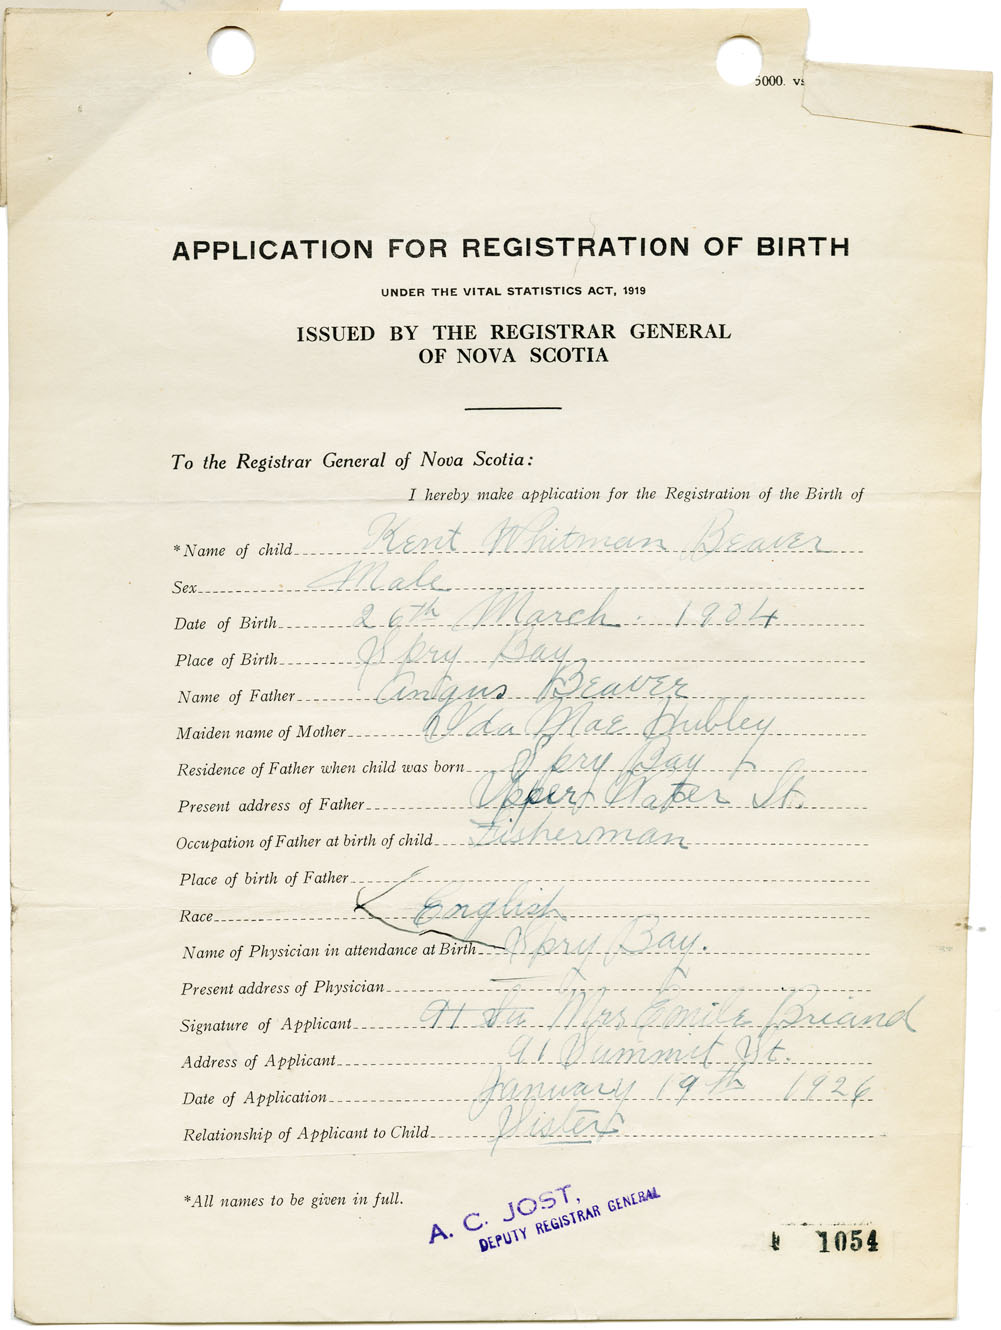 5000. vs
APPLICATION FOR REGISTRATION OF BIRTH
UNDER THE VITAL STATISTICS ACT, 1919
ISSUED BY THE REGISTRAR GENERAL
OF NOVA SCOTIA
To the Registrar General of Nova Scotia:
I hereby make application for the Registration of the Birth of
*Name of child Kent Whitman Beaver
Sex Male
Date of Birth 26th March. 1904
Place of Birth Spry Bay
Name of Father Angus Beaver
Maiden name of Mother Ida Mae Hubley
Residence of Father when child was born Spry Bay
Present address of Father Upper Water St.
Occupation of Father at birth of child Fisherman
Place of birth of Father
Race English
Name of Physician in attendance at Birth Spry Bay.
Present address of Physician
Signature of Applicant 91 Su Mrs Emile Briand
Address of Applicant 91 Summit St.
Date of Application January 19th 1926
Relationship of Applicant to Child Sister
*All names to be given in full.
A. C. JOST,
DEPUTY REGISTRAR GENERAL
1054